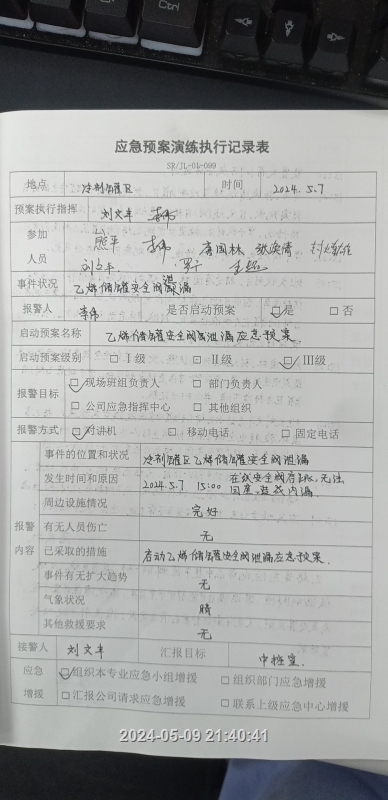 Ctrl
应急预案演练执行记录表
SR/JL-01-099
地点 冷剂罐区 时间 2024.5.7
预案执行指挥 刘文丰 李伟
参加 熊平 李伟 唐国林
人员 刘文丰 罗干
事件状况 乙烯储罐安全阀泄漏
报警人 李伟 是否启动预案 ☑是 □否
启动预案名称 乙烯储罐安全阀泄漏应急预案
启动预案级别 □Ⅰ级 □Ⅱ级 ☑Ⅲ级
报警目标 ☑现场班组负责人 □部门负责人
□公司应急指挥中心 □其他组织
报警方式 ☑对讲机 □移动电话 □固定电话
事件的位置和状况 冷剂罐区乙烯储罐安全阀泄漏
发生时间和原因 2024.5.7 15:00 在线安全阀存 无法
回座 内漏
周边设施情况 完好
报警 有无人员伤亡 无
内容 已采取的措施 启动乙烯储罐安全阀泄漏应急预案.
事件有无扩大趋势 无
气象状况 晴
其他救援要求 无
接警人 刘文丰 汇报目标 中控室.
应急 ☑组织本专业应急小组增援 □组织部门应急增援
增援 □汇报公司请求应急增援 □联系上级应急中心增援
2024-05-09 21:40:41